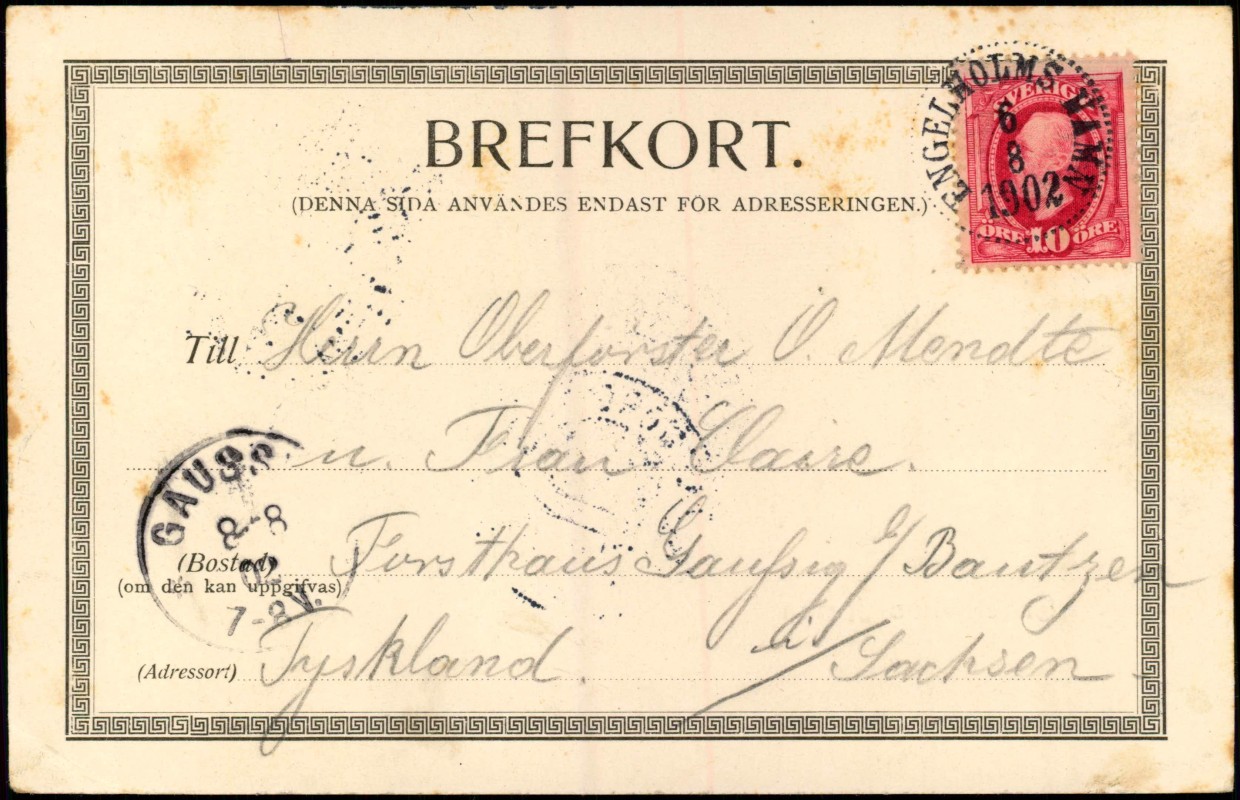 BREFKORT.
(DENNA SIDA ANVÄNDES ENDAST FÖR ADRESSERINGEN.)
ENGELHOLMS HAMN
6
8
1902
SVERIGE
ÖRE 10 ÖRE
Till Herrn Oberförster O. Mendte
u. Frau Claire.
GAUSSIG
8-8
02
7-8V.
(Bostad) Forsthaus Gaußig b/Bautzen
(om den kan uppgifvas)
(Adressort) Tyskland. i/Sachsen.